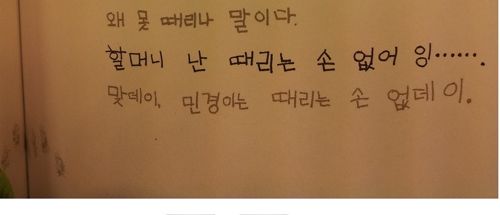 왜 못 때리나 말이다.
할머니 난 때리는 손 없어 잉…….
맞데이, 민경이는 때리는 손 없데이.